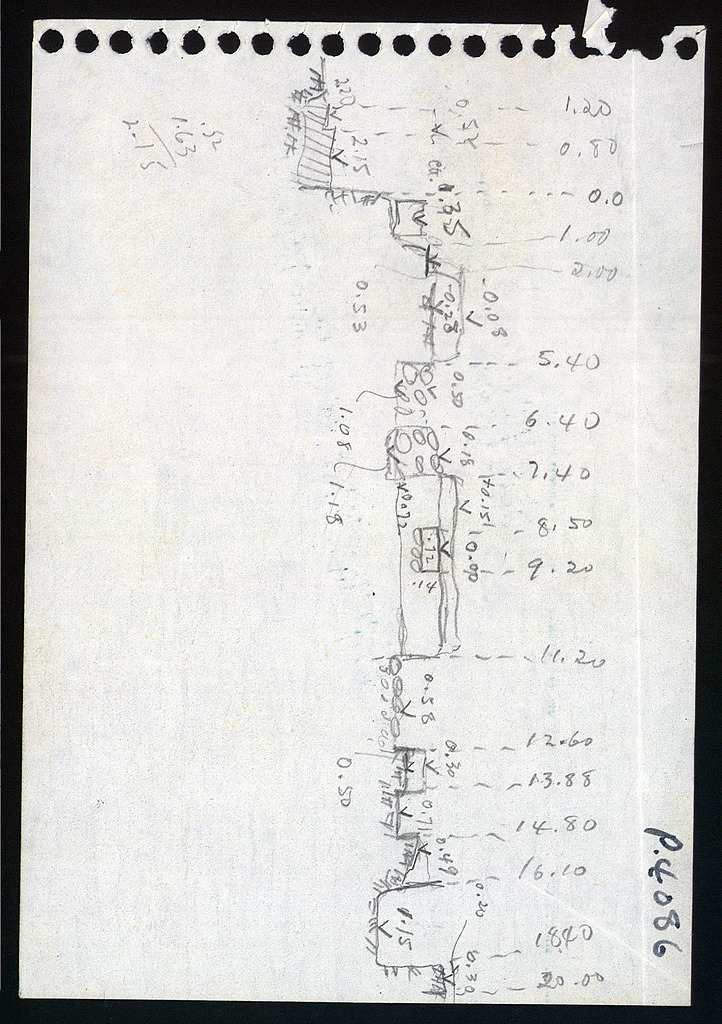 1.20
0.80
0.0
1.00
2.00
5.40
6.40
7.40
8.50
9.20
11.20
12.60
13.88
14.80
16.10
18.40
20.00
P.4086
2.20
2.15
0.52
-0.08
-0.28
0.53
0.50
0.18
1.08
1.18
+0.15
0.00
.14
0.58
0.30
0.50
0.71
0.49
0.20
0.30
.52
1.63
2.15